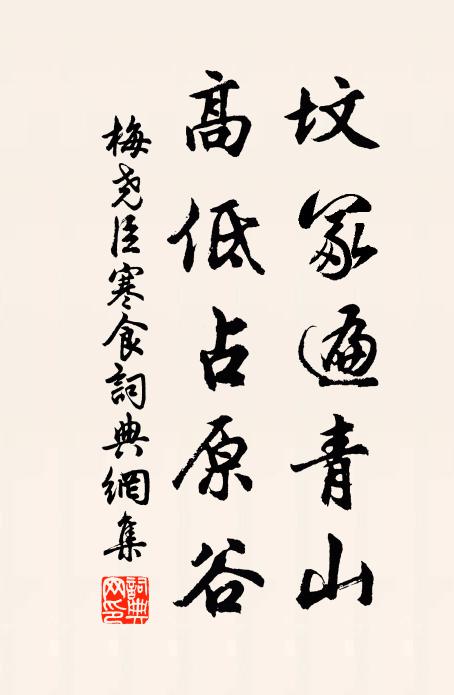 坟冢遍青山
高低占原谷
梅尧臣寒食詞典網集
詞典网印